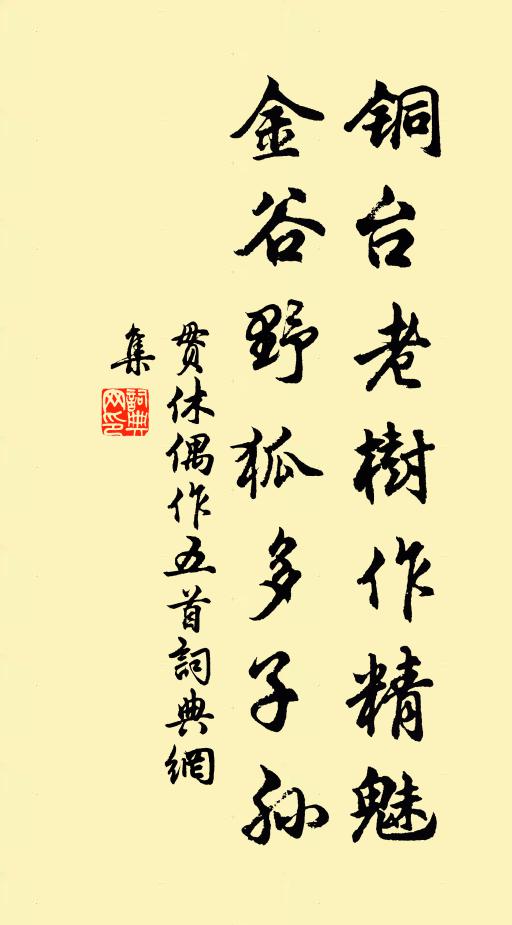 铜台老樹作精魅
金谷野狐多子孙
贯休偶作五首詞典網
集
詞典
网印